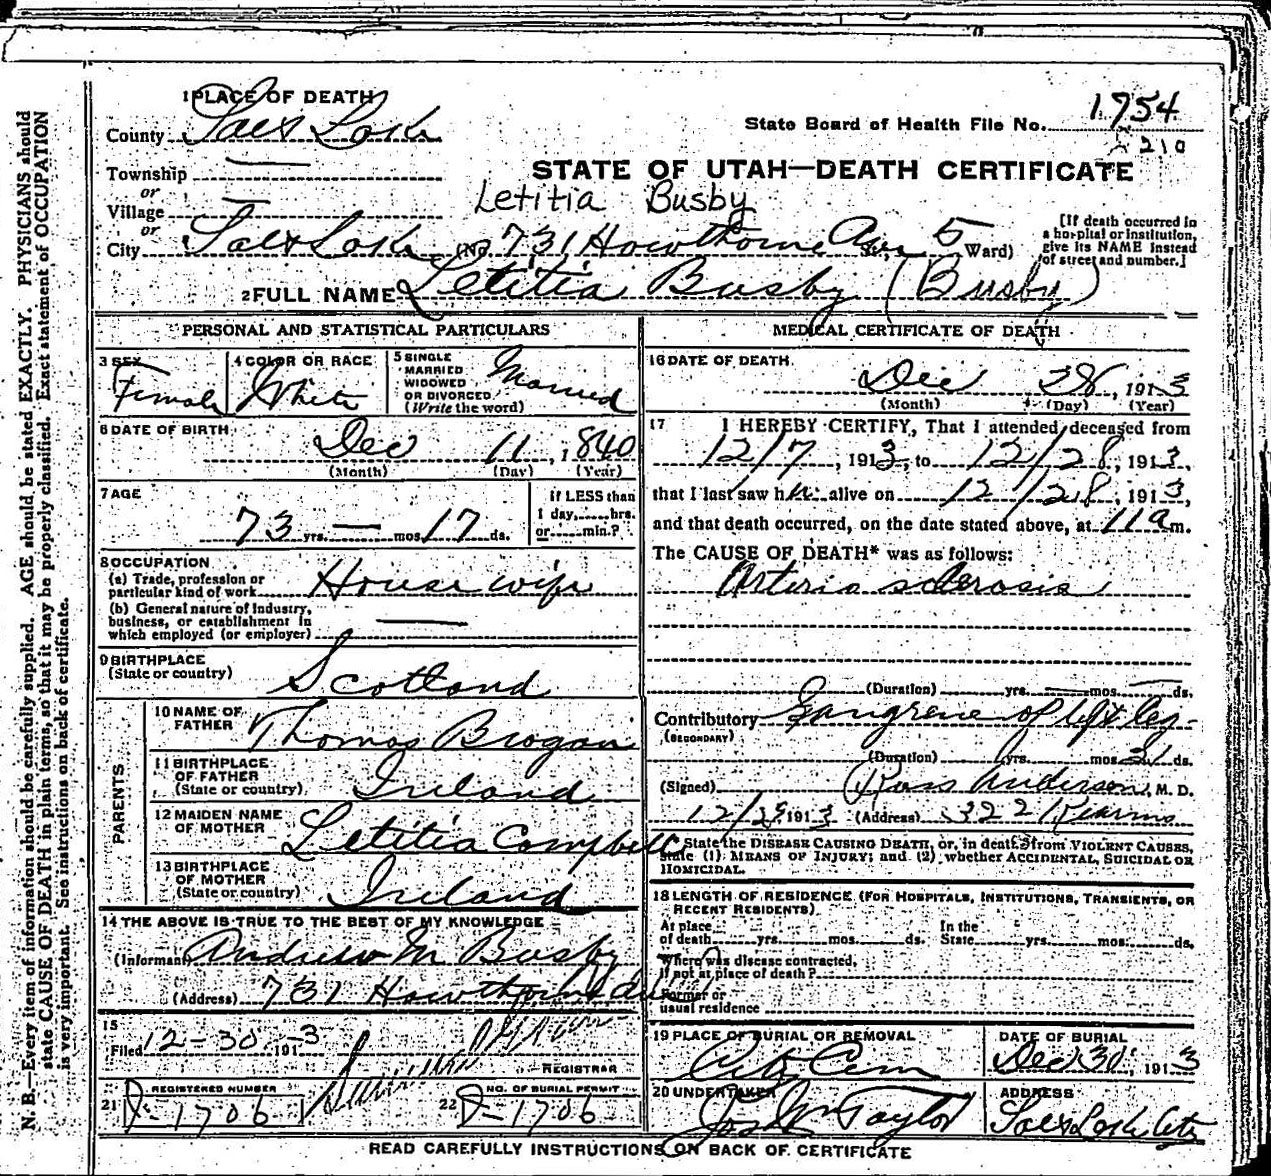 1 PLACE OF DEATH
County Salt Lake
State Board of Health File No. 1954
210
Township —
STATE OF UTAH—DEATH CERTIFICATE
or
Village —
Letitia Busby
or
City Salt Lake (No 731 Hawthorne Ave, 5 Ward)
[If death occurred in a hospital or institution, give its NAME instead of street and number.]
2 FULL NAME Letitia Busby (Busby)
PERSONAL AND STATISTICAL PARTICULARS
3 SEX Female
4 COLOR OR RACE White
5 SINGLE MARRIED WIDOWED OR DIVORCED (Write the word) Married
6 DATE OF BIRTH
Dec 11, 1840
(Month) (Day) (Year)
7 AGE
73 yrs. — mos. 17 ds.
if LESS than 1 day, ......hrs. or......min.?
8 OCCUPATION
(a) Trade, profession or particular kind of work House wife
(b) General nature of industry, business, or establishment in which employed (or employer) —
9 BIRTHPLACE (State or country) Scotland
PARENTS
10 NAME OF FATHER Thomas Brogan
11 BIRTHPLACE OF FATHER (State or country) Ireland
12 MAIDEN NAME OF MOTHER Letitia Campbell
13 BIRTHPLACE OF MOTHER (State or country) Ireland
14 THE ABOVE IS TRUE TO THE BEST OF MY KNOWLEDGE
(Informant Andrew M Busby
(Address) 731 Hawthorne
15
Filed 12-30 1913
REGISTRAR
REGISTERED NUMBER
21 J-1706
NO. OF BURIAL PERMIT
22 J-1706
MEDICAL CERTIFICATE OF DEATH
16 DATE OF DEATH
Dec 28, 1913
(Month) (Day) (Year)
17 I HEREBY CERTIFY, That I attended deceased from
12/7, 1913, to 12/28, 1913,
that I last saw her alive on 12/28, 1913,
and that death occurred, on the date stated above, at 11 a m.
The CAUSE OF DEATH* was as follows:
Arterio sclerosis
(Duration) yrs. — mos. — ds.
Contributory Gangrene of left leg-
(SECONDARY)
(Duration) yrs. mos. 21 ds.
(Signed) Ross Anderson, M. D.
12/29 1913 (Address) 322 Kearns
State the DISEASE CAUSING DEATH, or, in deaths from VIOLENT CAUSES, state (1) MEANS OF INJURY; and (2) whether ACCIDENTAL, SUICIDAL OR HOMICIDAL.
18 LENGTH OF RESIDENCE (FOR HOSPITALS, INSTITUTIONS, TRANSIENTS, OR RECENT RESIDENTS)
At place of death yrs. mos. ds. In the State yrs. mos. ds.
Where was disease contracted, if not at place of death?
Former or usual residence
19 PLACE OF BURIAL OR REMOVAL
City Cem
DATE OF BURIAL
Dec 30, 1913
20 UNDERTAKER
Jos Wm Taylor
ADDRESS
Salt Lake City
READ CAREFULLY INSTRUCTIONS ON BACK OF CERTIFICATE
N. B.—Every item of information should be carefully supplied. AGE should be stated EXACTLY. PHYSICIANS should
state CAUSE OF DEATH in plain terms, so that it may be properly classified. Exact statement of OCCUPATION
is very important. See instructions on back of certificate.